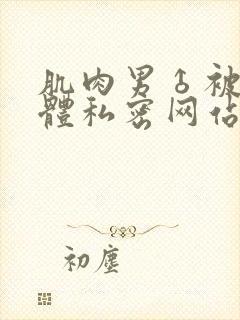 肌肉男♂被
體私密网佔
初塵